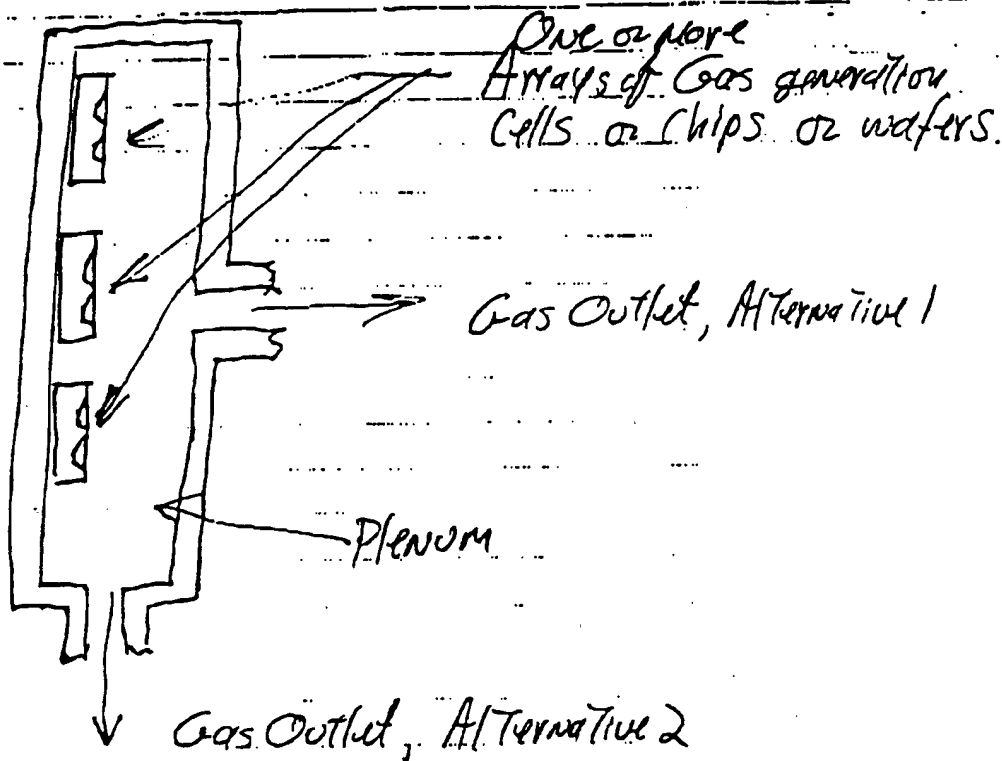 One or more
Arrays of Gas generation
Cells or Chips or wafers.
Gas Outlet, Alternative 1
Plenum
Gas Outlet, Alternative 2